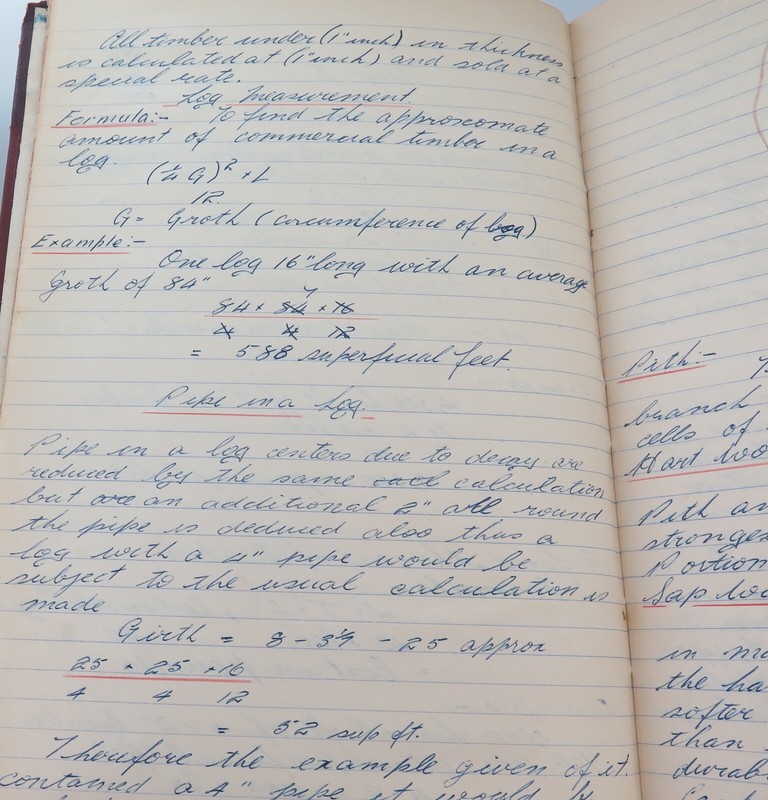 All timber under (1" inch) in thickness
is calculated at (1" inch) and sold at a
special rate.
Log Measurement.
Formula:- To find the approxomate
amount of commercial timber in a
log.
(¼ G)² × L
12.
G = Groth (circumference of log)
Example:-
One log 16" long with an average
Groth of 84"
7
84 × 84 × 16
4 4 12
= 588 superficial feet.
Pipe in a Log.
Pipe in a log centers due to decay are
reduced by the same calculation
but are an additional 2" all round
the pipe is deduced also thus a
log with a 4" pipe would be
subject to the usual calculation is
made
Girth = 8 - 3¹⁄₇ - 25 approx
25 × 25 × 16
4 4 12
= 52 sup ft.
Therefore the example given of it.
contained a 4" pipe it would be
Pith:-
branch
cells of
Hart Woo
Pith an
stronges
Portion
Sap Woo
in mo
the ha
softer
than
durab